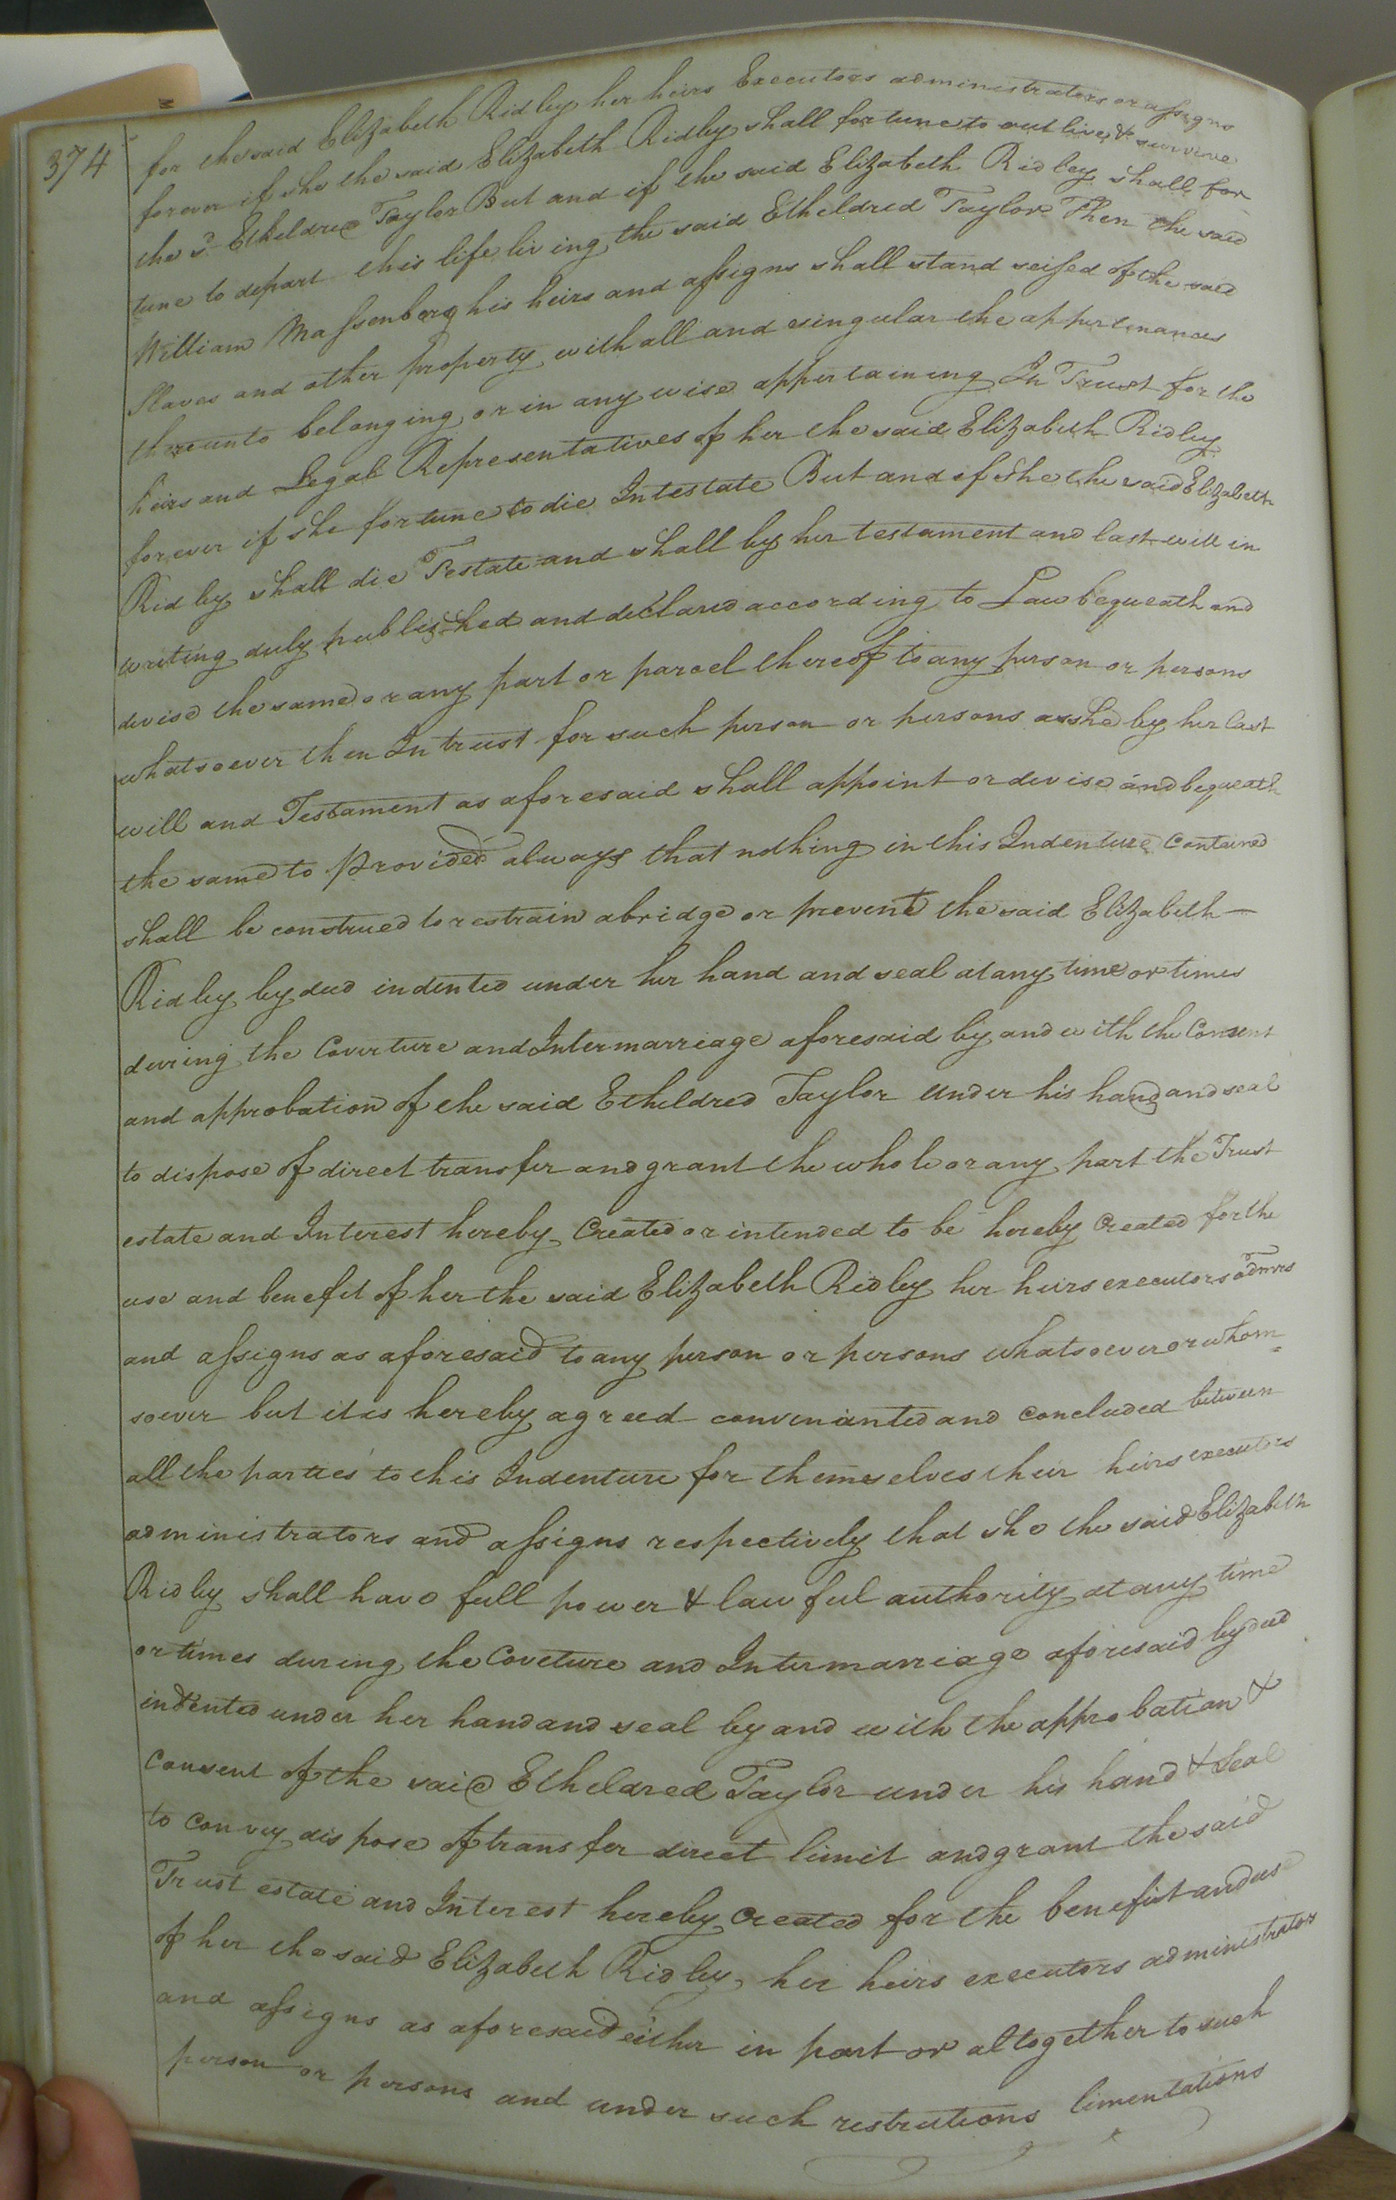 374
for the said Elizabeth Ridley her heirs Executors administrators or assigns
forever if she the said Elizabeth Ridley shall fortune to outlive & survive
the sd. Etheldred Taylor But and if the said Elizabeth Ridley shall for
tune to depart this life living the said Etheldred Taylor Then the said
William Massenberg his heirs and assigns shall stand seised of the said
Slaves and other property with all and singular the appurtenances
thereunto belonging or in any wise appertaining In Trust for the
heirs and Legal Representatives of her the said Elizabeth Ridley
forever if she fortune to die Intestate But and if she the said Elizabeth
Ridley shall die Testate and shall by her testament and last will in
writing duly published and declared according to Law bequeath and
devise the same or any part or parcel thereof to any person or persons
whatsoever then In trust for such person or persons as she by her last
will and Testament as aforesaid shall appoint or devise and bequeath
the same to Provided always that nothing in this Indenture Contained
shall be construed to restrain abridge or prevent the said Elizabeth —
Ridley by deed indented under her hand and seal at any time or times
during the Coverture and Intermarriage aforesaid by and with the Consent
and approbation of the said Etheldred Taylor under his hand and seal
to dispose of direct transfer and grant the whole or any part the Trust
estate and Interest hereby Created or intended to be hereby Created for the
use and benefit of her the said Elizabeth Ridley her heirs executors admrs
and assigns as aforesaid to any person or persons whatsoever or whom=
soever but it is hereby agreed convenianted and concluded between
all the parties to this Indenture for themselves their heirs executors
administrators and assigns respectively that she the said Elizabeth
Ridley shall have full power & lawful authority at any time
or times during the Coveture and Intermarriage aforesaid by deed
indented under her hand and seal by and with the approbation &
Consent of the said Etheldred Taylor under his hand & Seal
to convey dispose of transfer direct limit and grant the said
Trust estate and Interest hereby Created for the benefit and use
of her the said Elizabeth Ridley her heirs executors administrators
and assigns as aforesaid either in part or altogether to such
person or persons and under such restrutions limentations